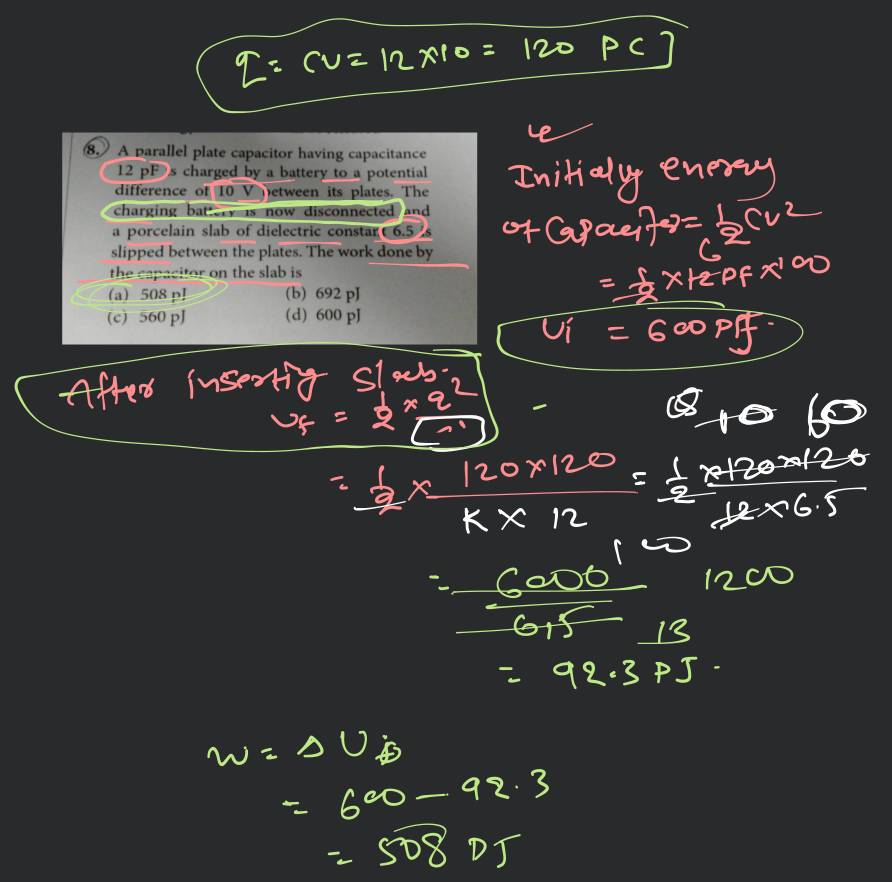 q = CV = 12×10 = 120 PC ]
8. A parallel plate capacitor having capacitance
12 pF is charged by a battery to a potential
difference of 10 V between its plates. The
charging battery is now disconnected and
a porcelain slab of dielectric constant 6.5 is
slipped between the plates. The work done by
the capacitor on the slab is
(a) 508 pJ (b) 692 pJ
(c) 560 pJ (d) 600 pJ
Initially energy
of Capacitor = 1/2 CV²
6
= 1/2 × 12 PF × 100
Ui = 600 PJ.
After inserting slab.
Uf = 1/2 × q²
= 1/2 × 120×120 / K × 12 = 1/2 × 120×120 / 12 × 6.5
10 60
100
= 6000 / 6.5 1200
13
= 92.3 PJ.
W = Δ U
= 600 – 92.3
= 508 PJ